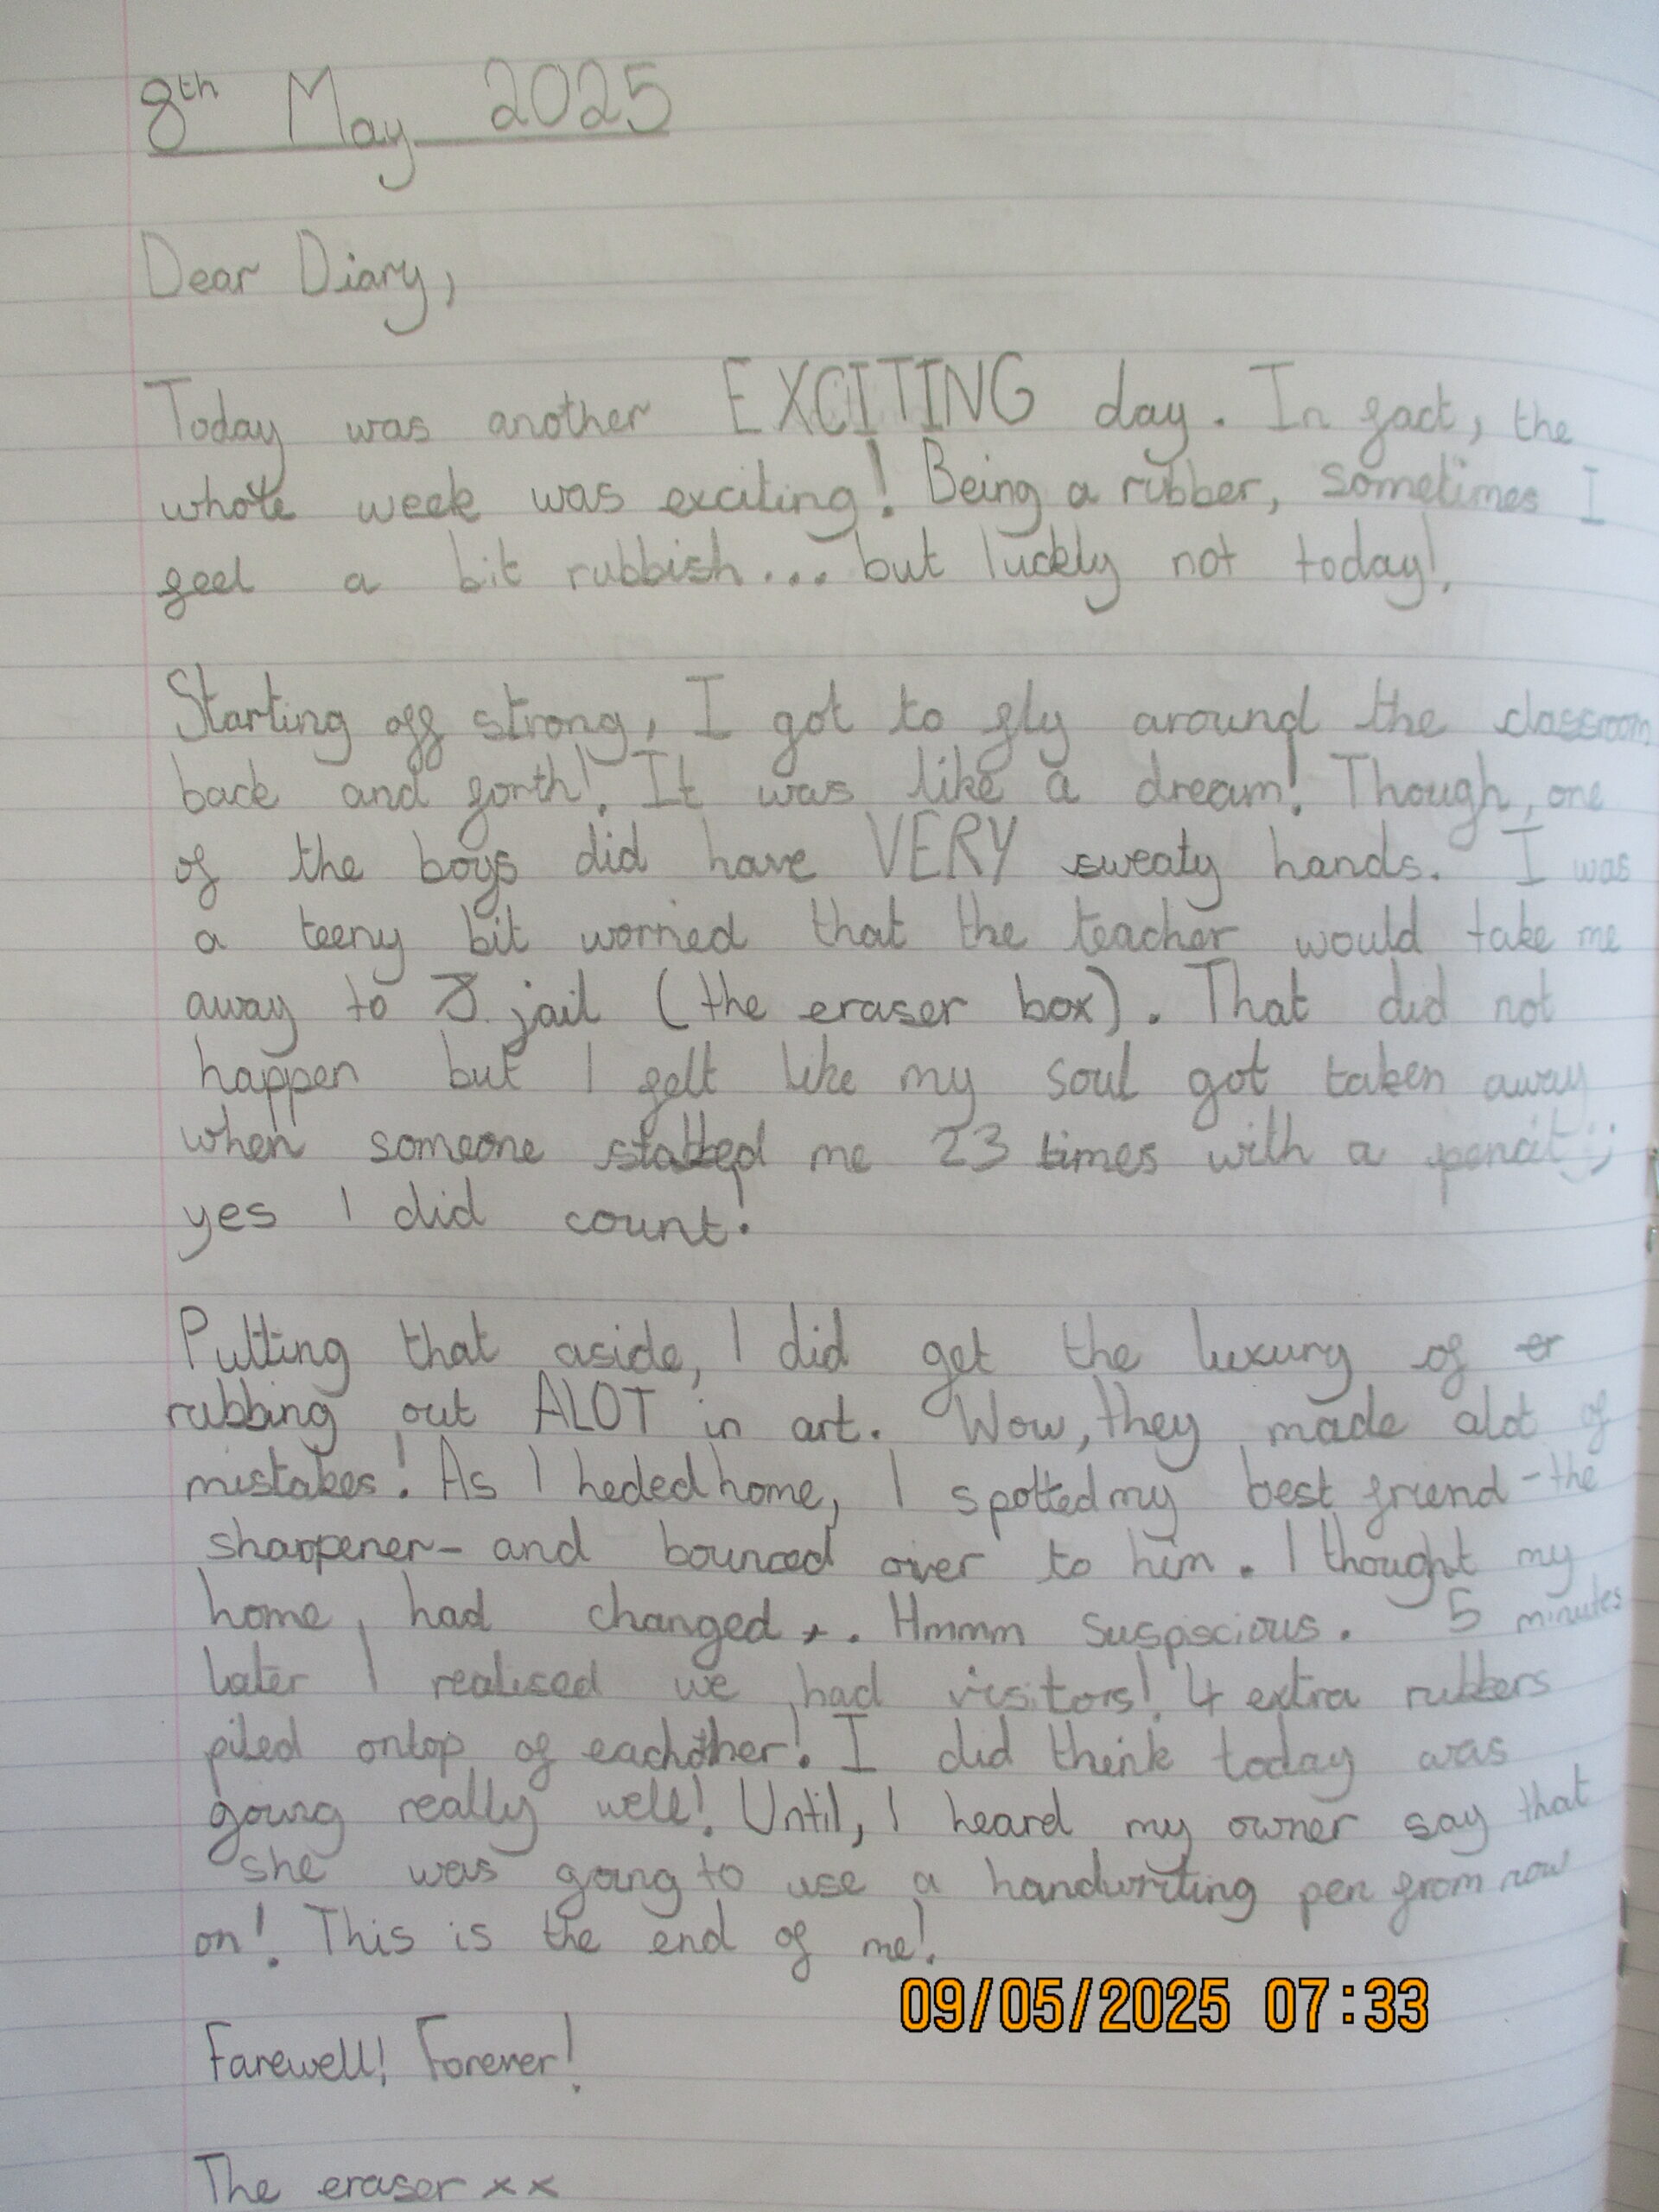 8th May 2025
Dear Diary,
Today was another EXCITING day. In fact, the
whole week was exciting! Being a rubber, sometimes I
feel a bit rubbish... but luckly not today!
Starting off strong, I got to fly around the classroom
back and forth! It was like a dream! Though, one
of the boys did have VERY sweaty hands. I was
a teeny bit worried that the teacher would take me
away to jail (the eraser box). That did not
happen but I felt like my soul got taken away
when someone stabbed me 23 times with a pencil;
yes I did count!
Putting that aside, I did get the luxury of er
rubbing out ALOT in art. Wow, they made alot of
mistakes! As I heded home, I spotted my best friend - the
sharpener - and bounced over to him. I thought my
home had changed. Hmmm suspiscious. 5 minutes
later I realised we had visitors! 4 extra rubbers
piled ontop of eachother! I did think today was
going really well! Until, I heard my owner say that
she was going to use a handwriting pen from now
on! This is the end of me!
09/05/2025 07:33
Farewell! Forever!
The eraser xx